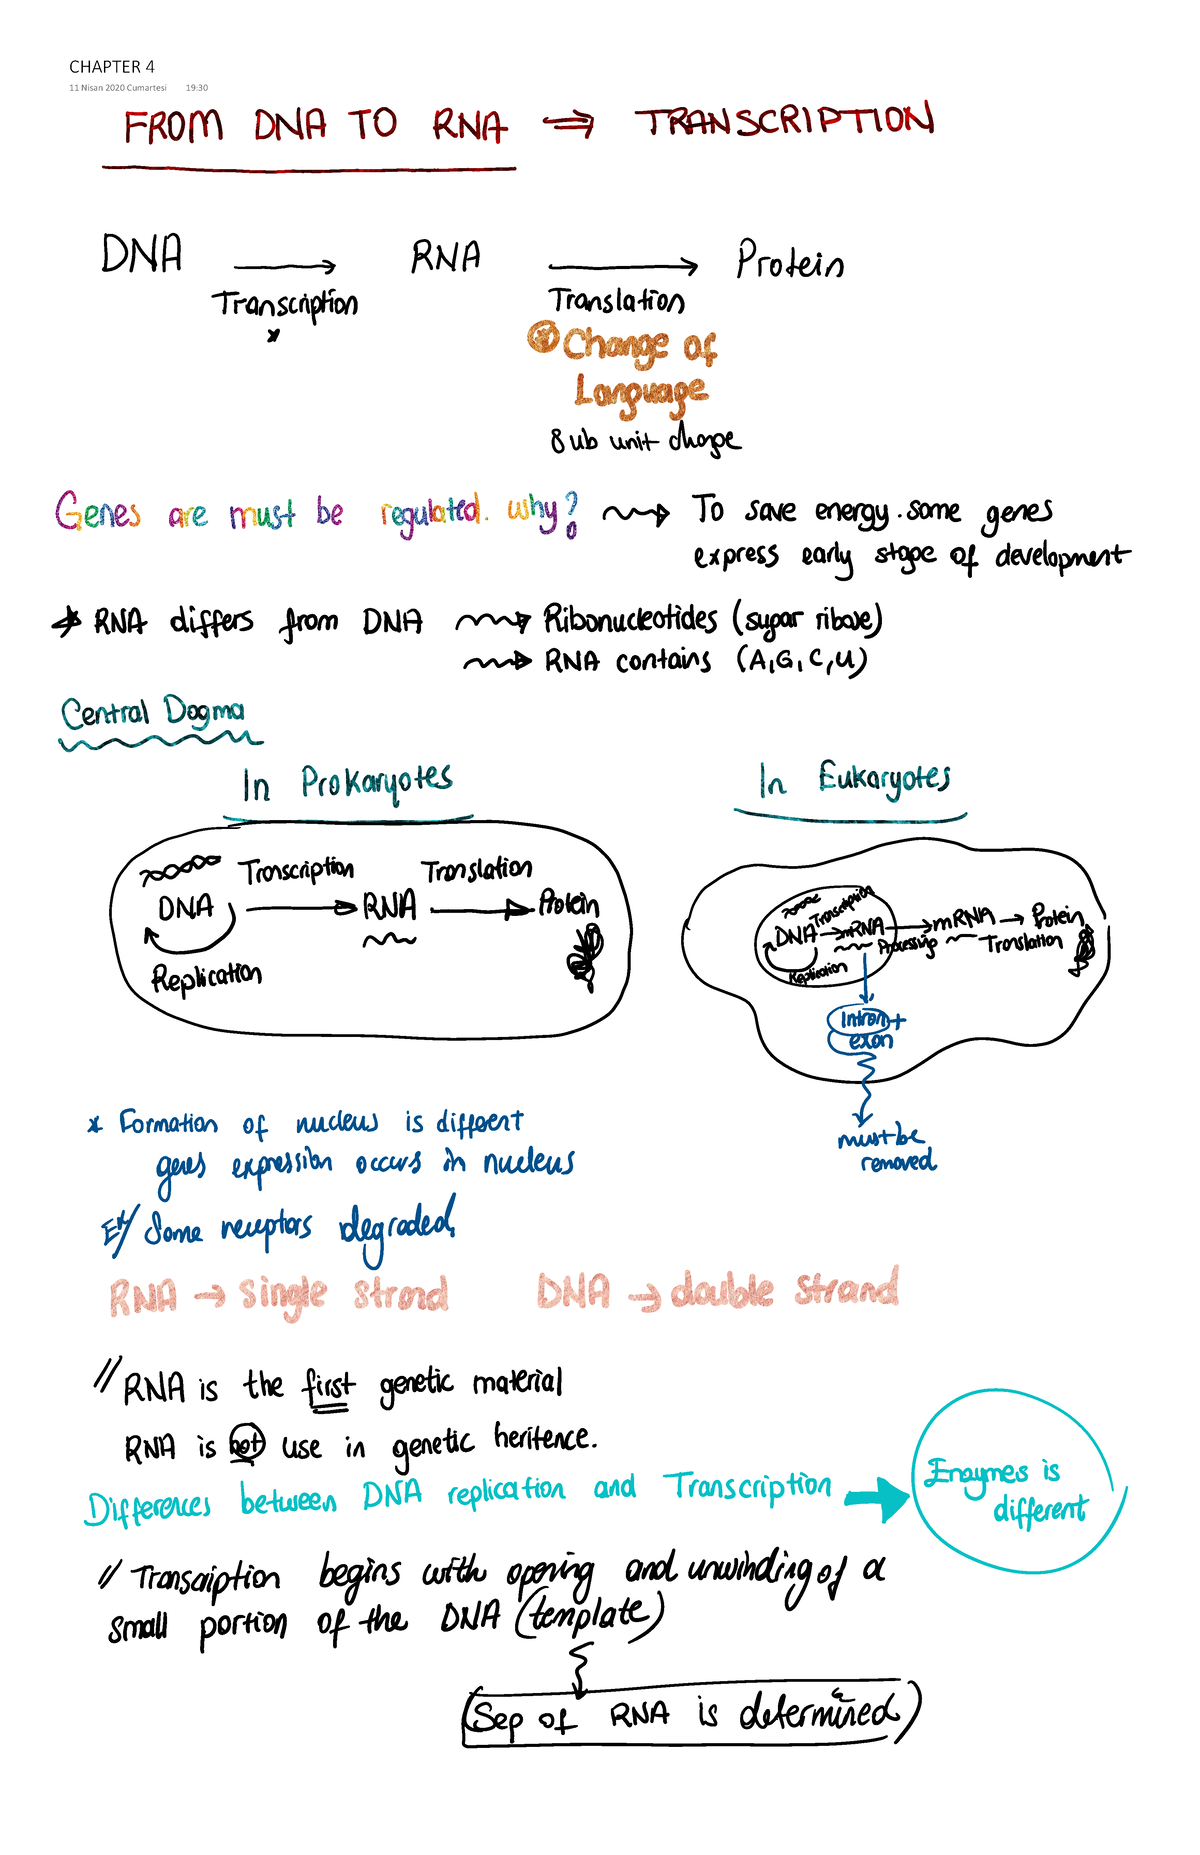 CHAPTER 4
11 Nisan 2020 Cumartesi 19:30
FROM DNA TO RNA ⇒ TRANSCRIPTION
DNA → RNA → Protein
Transcription Translation
Change of
Language
Sub unit change
Genes are must be regulated. why? → To save energy. some genes
express early stage of development
* RNA differs from DNA → Ribonucleotides (sugar ribose)
→ RNA contains (A, G, C, U)
Central Dogma
In Prokaryotes
DNA Transcription → RNA Translation → Protein
Replication
In Eukaryotes
DNA Transcription → mRNA Processing → mRNA → Protein
Replication Translation
Intron +
exon
must be
removed
* Formation of nucleus is different
genes expression occurs in nucleus
Ex/ Some receptors degraded.
RNA → single strand DNA → double strand
// RNA is the first genetic material
RNA is not use in genetic heritence.
Differences between DNA replication and Transcription → Enzymes is
different
// Transcription begins with opening and unwinding of a
small portion of the DNA (template)
(Seq of RNA is determined)